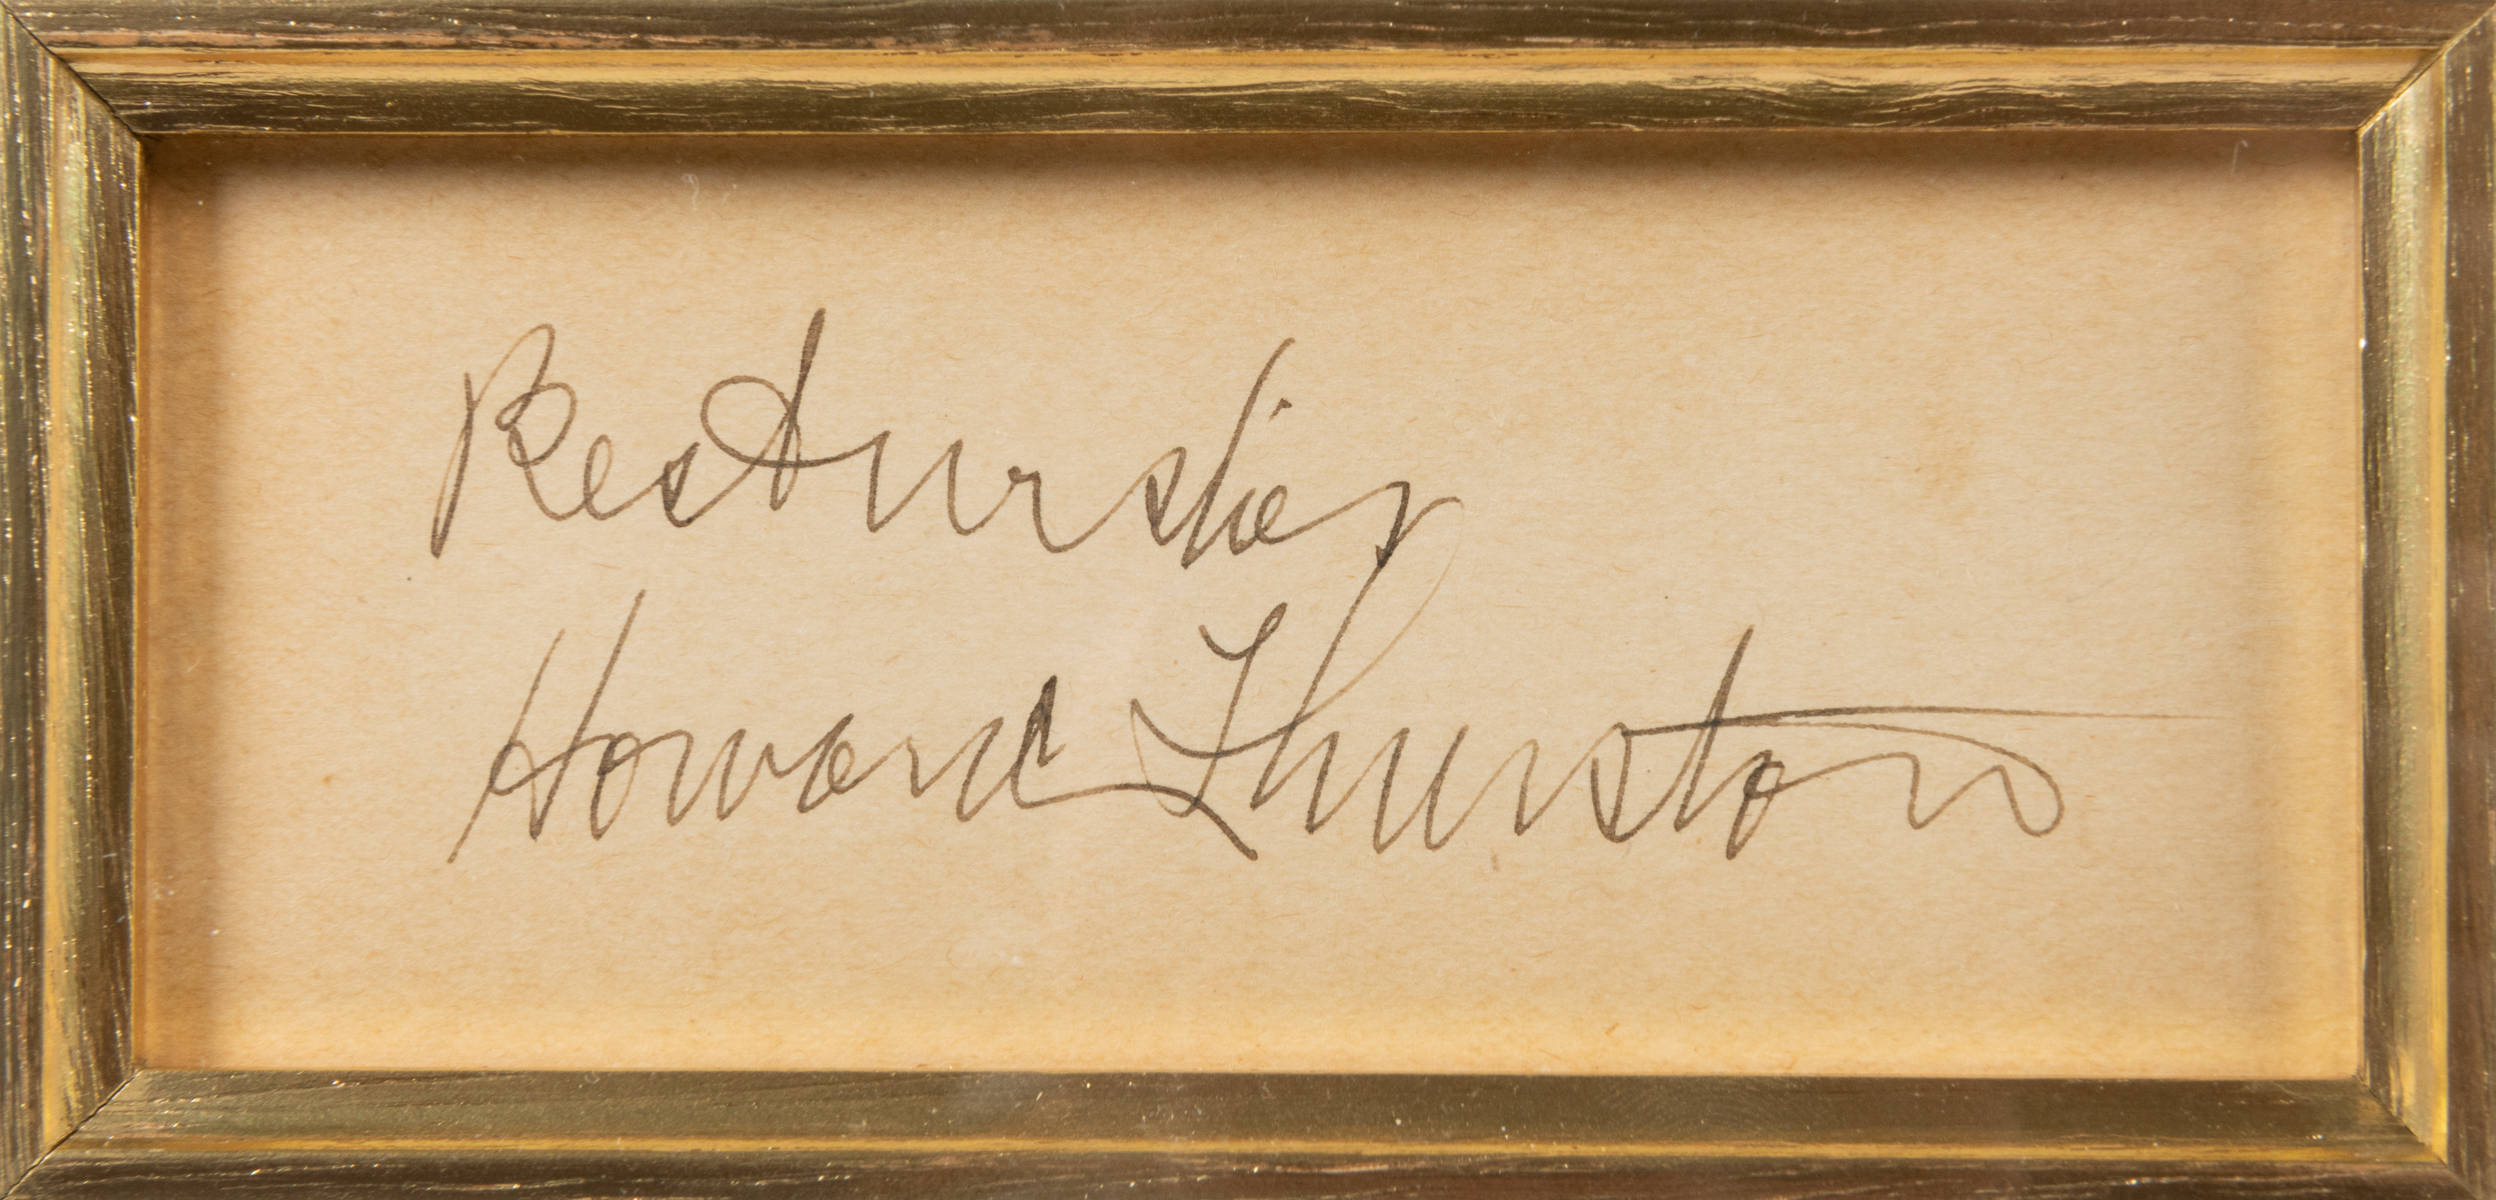 Best wishes
Howard Thurston